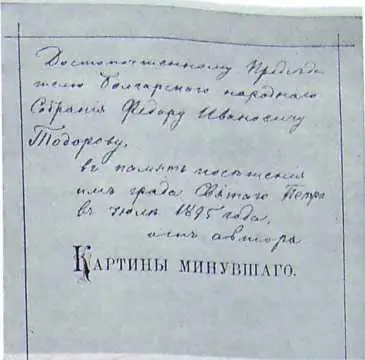 Достопочтенному Председа
телю Болгарскаго народнаго
Собранія Ѳедору Ивановичу
Тодорову,
въ память посѣщенія
имъ града Святаго Петра
въ Іюлѣ 1895 года,
отъ автора
Картины минувшаго.